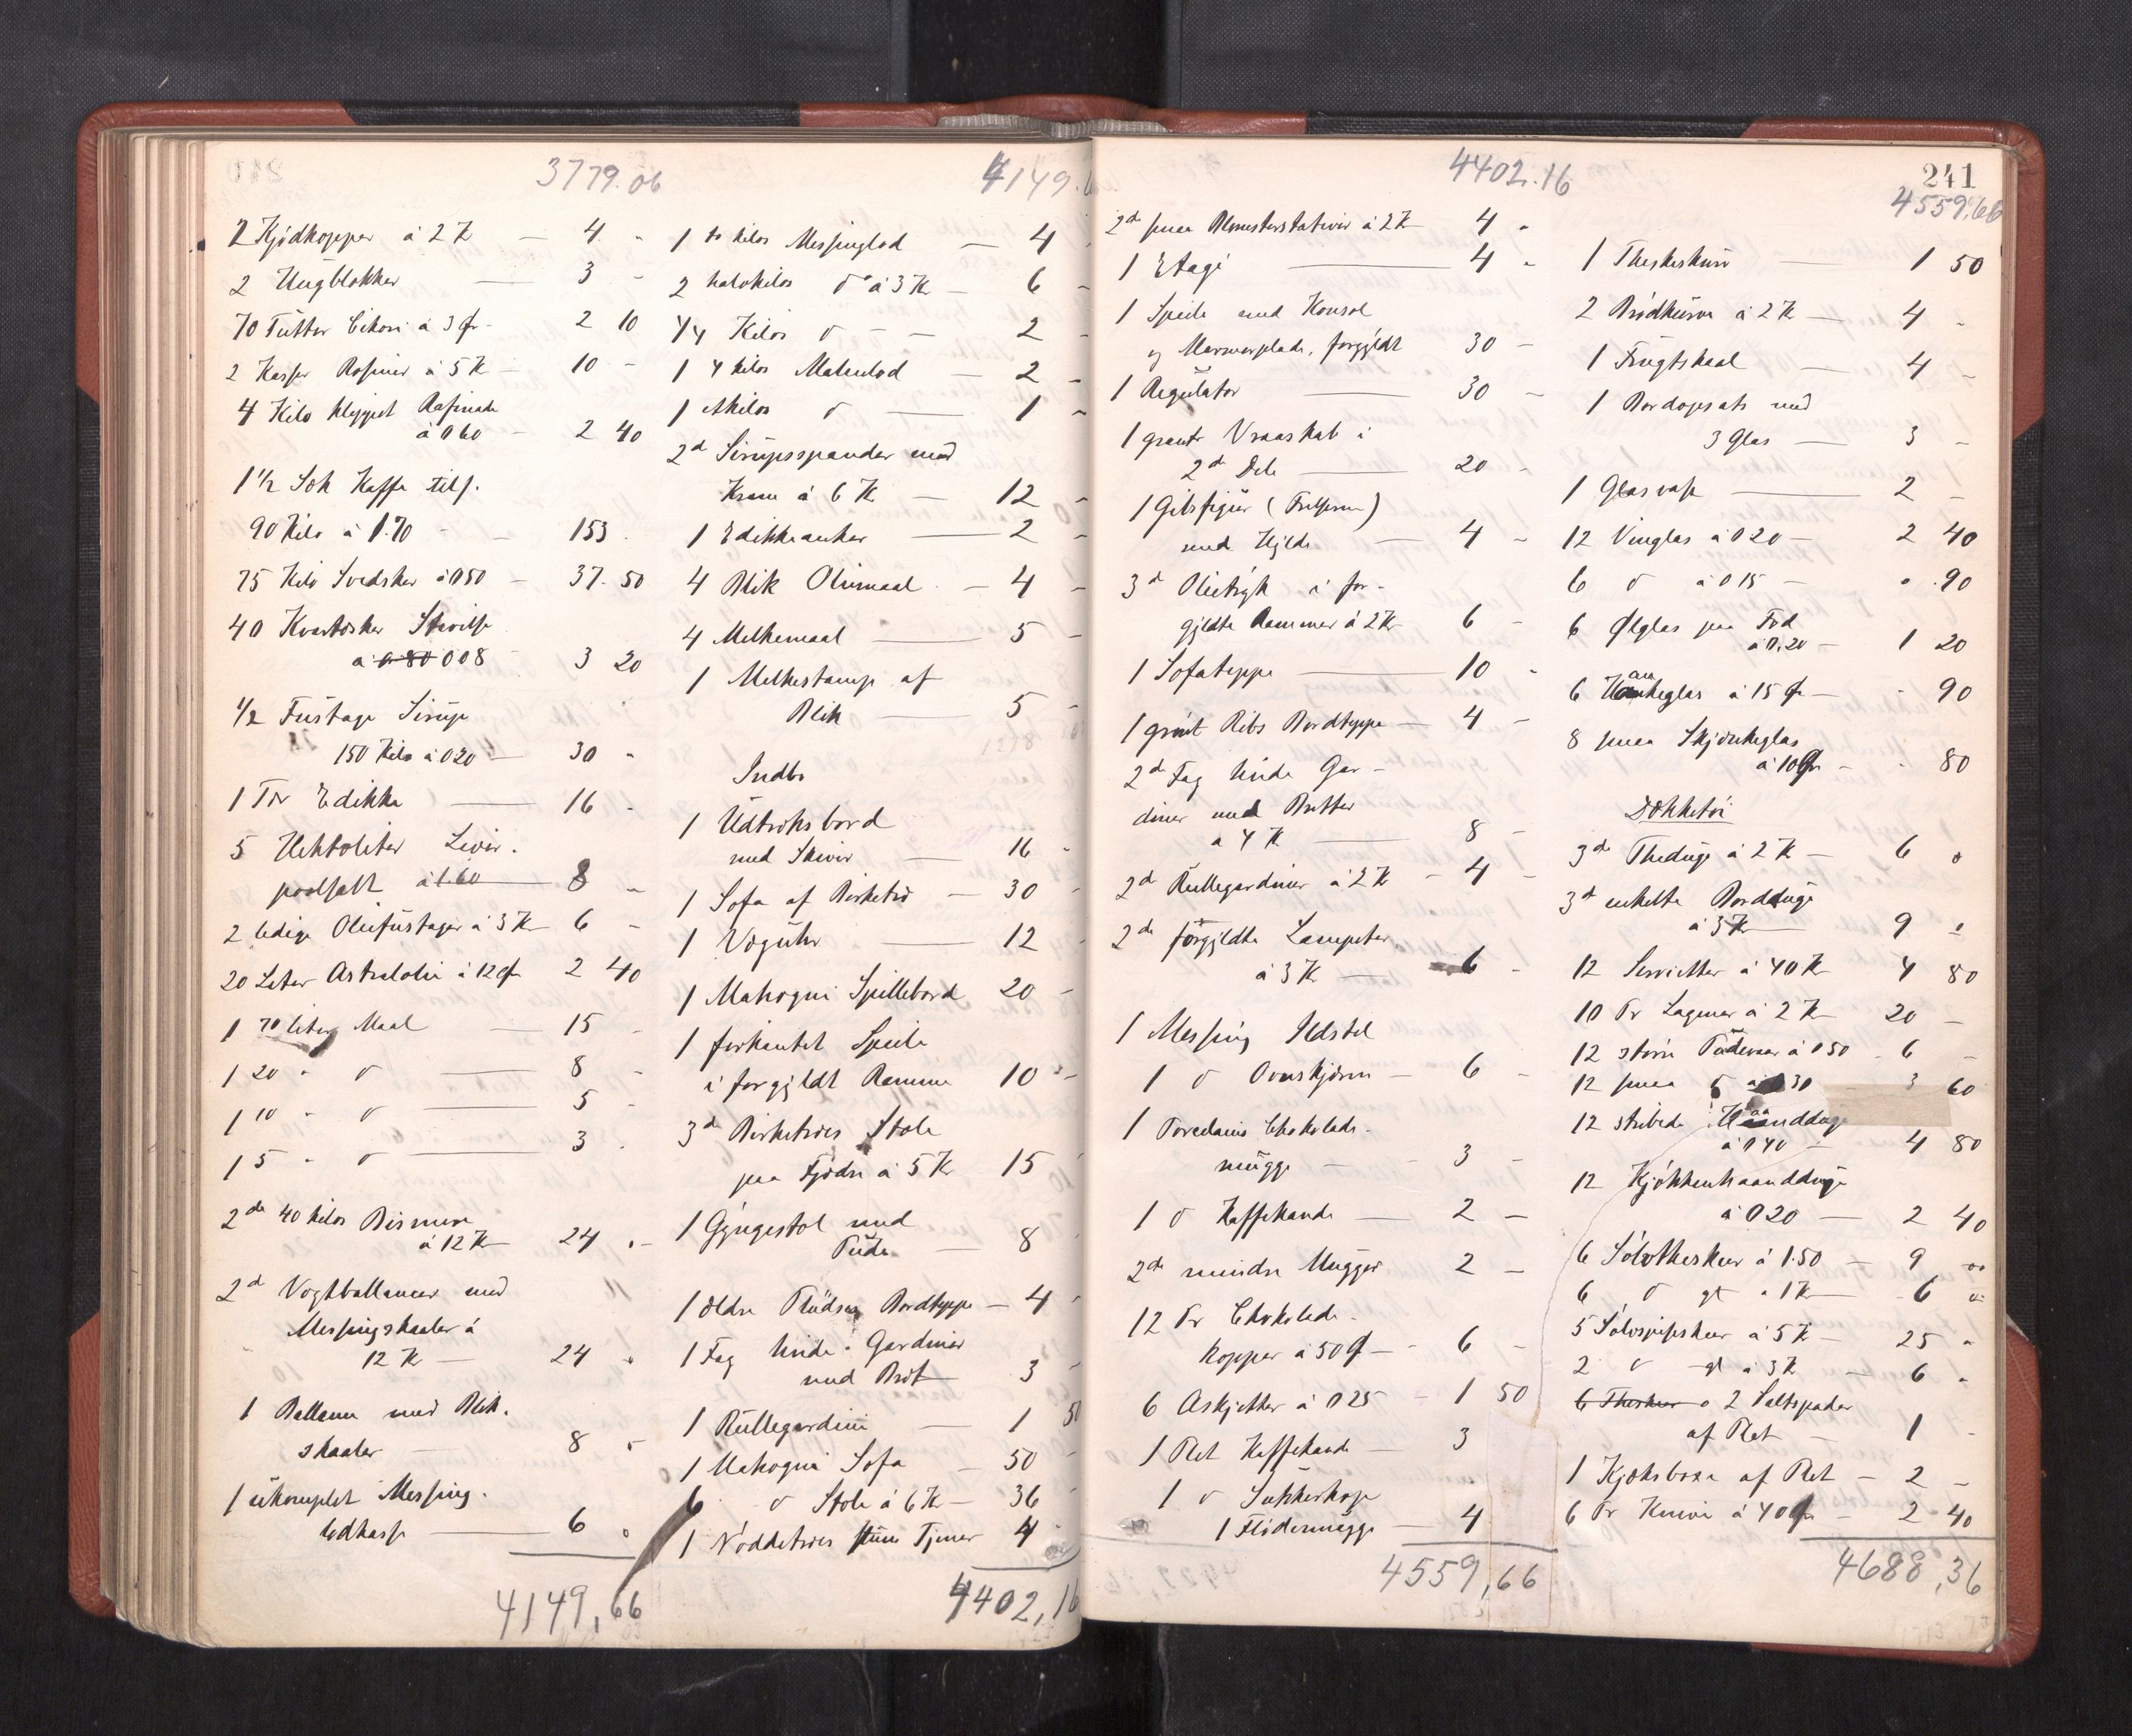 3779.06
2 Kjødkopper á 2 K — 4 "
2 Hugblokker — 3 -
70 Tutter Cikori á 3 Ø - 2 10
2 Kasser Rosiner á 5 K - 10 -
4 Kilo klippet Rafinade
á 0 60 - 2 40
1 1/2 Sæk Kaffe tils.
90 Kilo á 1.70 - 153 .
75 Kilo Svedsker á 0 50 - 37.50
40 Kvartæsker Stivelse
á 0 80 0 08 - 3 20
1/2 Fustage Sirup
150 Kilo á 0 20 - 30 -
1 Tr Edikke — 16 -
5 Hektoliter Liver-
poolsalt á 1.60 — 8 -
2 ledige Oliefustager á 3 K - 6 -
20 Leter Astralolie á 12 Ø 2 40
1 70 liter Maal — 15 -
1 20 " d — 8 -
1 10 " d — 5 -
1 5 " d — 3 -
2de 40 kilos Bismere
á 12 K - 24 . -
2de Vegtballancer med
Messingskaaler á
12 K - 24 "
1 Ballance med Blik-
skaaler — 8 "
1 ukomplet Messing-
lodkasse — 6 "
4149,66
4149.
1 to kilos Messinglod — 4
2 halvkilos do á 3 K - 6 -
1/4 Kilos d — 2 -
1 4 kilos Malmlod — 2 -
1 1 kilos d — 1 -
2de Sirupsspander med
Kran á 6 K — 12 -
1 Edikkeanker — 2 -
4 Blik Oliemaal — 4 -
4 Melkemaal — 5 -
1 Melkestamp af
Blik — 5 -
Indbo
1 Udtræksbord
med Skiver — 16 -
1 Sofa af Birketræ — 30 -
1 Væguhr — 12 -
1 Mahogni Spillebord 20 -
1 firkantet Speile
i forgyldt Ramme 10 -
3de Birketræes Stole
paa Fjødre á 5 K 15 -
1 Gyngestol med
Pude — 8
1 ældre Plydses Bordteppe - 4 -
1 Fag hvide Gardiner
med Bret 3 -
1 Rullegardin — 1 50
1 Mahogni Sofa — 50 -
6 d Stole á 6 K - 36 -
1 Nøddetræes stum Tjener 4 -
4402,16
4402.16
2de smaa Blomsterstativer á 2 K 4 "
1 Etage — 4 -
1 Speile med Konsol
og Marmorplade, forgyldt 30 -
1 Regulator — 30 -
1 grønt Vraaskab i
2de Dele — 20 -
1 Gibsfigur (Frelseren)
med Hylde — 4 -
3de Olietryk i for-
gyldte Rammer á 2 K 6 -
1 Sofateppe — 10 -
1 grønt Ribs Bordteppe — 4 -
2de Fag hvide Gar-
diner med Bretter
á 4 K — 8 -
2de Rullegardiner á 2 K - 4 -
2de forgyldte Lampeter
á 3 K — 6 -
1 Messing Ildstel
1 d Ovnskjærm — 6 -
1 Porcelains Chokolade-
mugge — 3 -
1 d Kaffekande — 2 -
2de mindre Mugger 2 -
12 Pr Chokolade-
kopper á 50 Ø - 6 -
6 Askjetter á 0 25 - 1 50
1 Plet Kaffekande — 3
1 d Sukkerkop
1 Flødemugge — 4
4559,66
241
4559,66
1 Theskekurv — 1 50
2 Brødkurve á 2 K — 4 -
1 Frugtskaal — 4 -
1 Bordopsats med
3 Glas — 3 -
1 Glasvase — 2 -
12 Vinglas á 0 20 - 2 40
6 d á 0 15 - " .90
6 Ølglas paa Fod
á 0.20 — 1 20
6 Hankeglas á 15 Ø - - 90
8 smaa Skjænkeglas
á 10 Ø - - 80
Dækketøi
3de Theduge á 2 K — 6 "
3de enkelte Bordduge
á 3 K — 9 "
12 Servietter á 40 K 4 80
10 Pr Lagener á 2 K 20 -
12 større Pudevaar á 0 50 - 6 -
12 smaa d á 0 30 3 60
12 stribede Haandduge
á 0 40 — 4 80
12 Kjøkkenhaandduge
á 0 20 — 2 40
6 Sølvtheskeer á 1.50 — 9 "
6 d gl á 1 K — 6 "
5 Sølvspiseskeer á 5 K — 25 "
2 d gl á 3 K — 6 "
6 Theskeer o 2 Saltspader
af Plet — 1 -
1 Kjæksboxe af Plet — 2 -
6 Pr Knive á 40 Ø — 2 40
4688,36